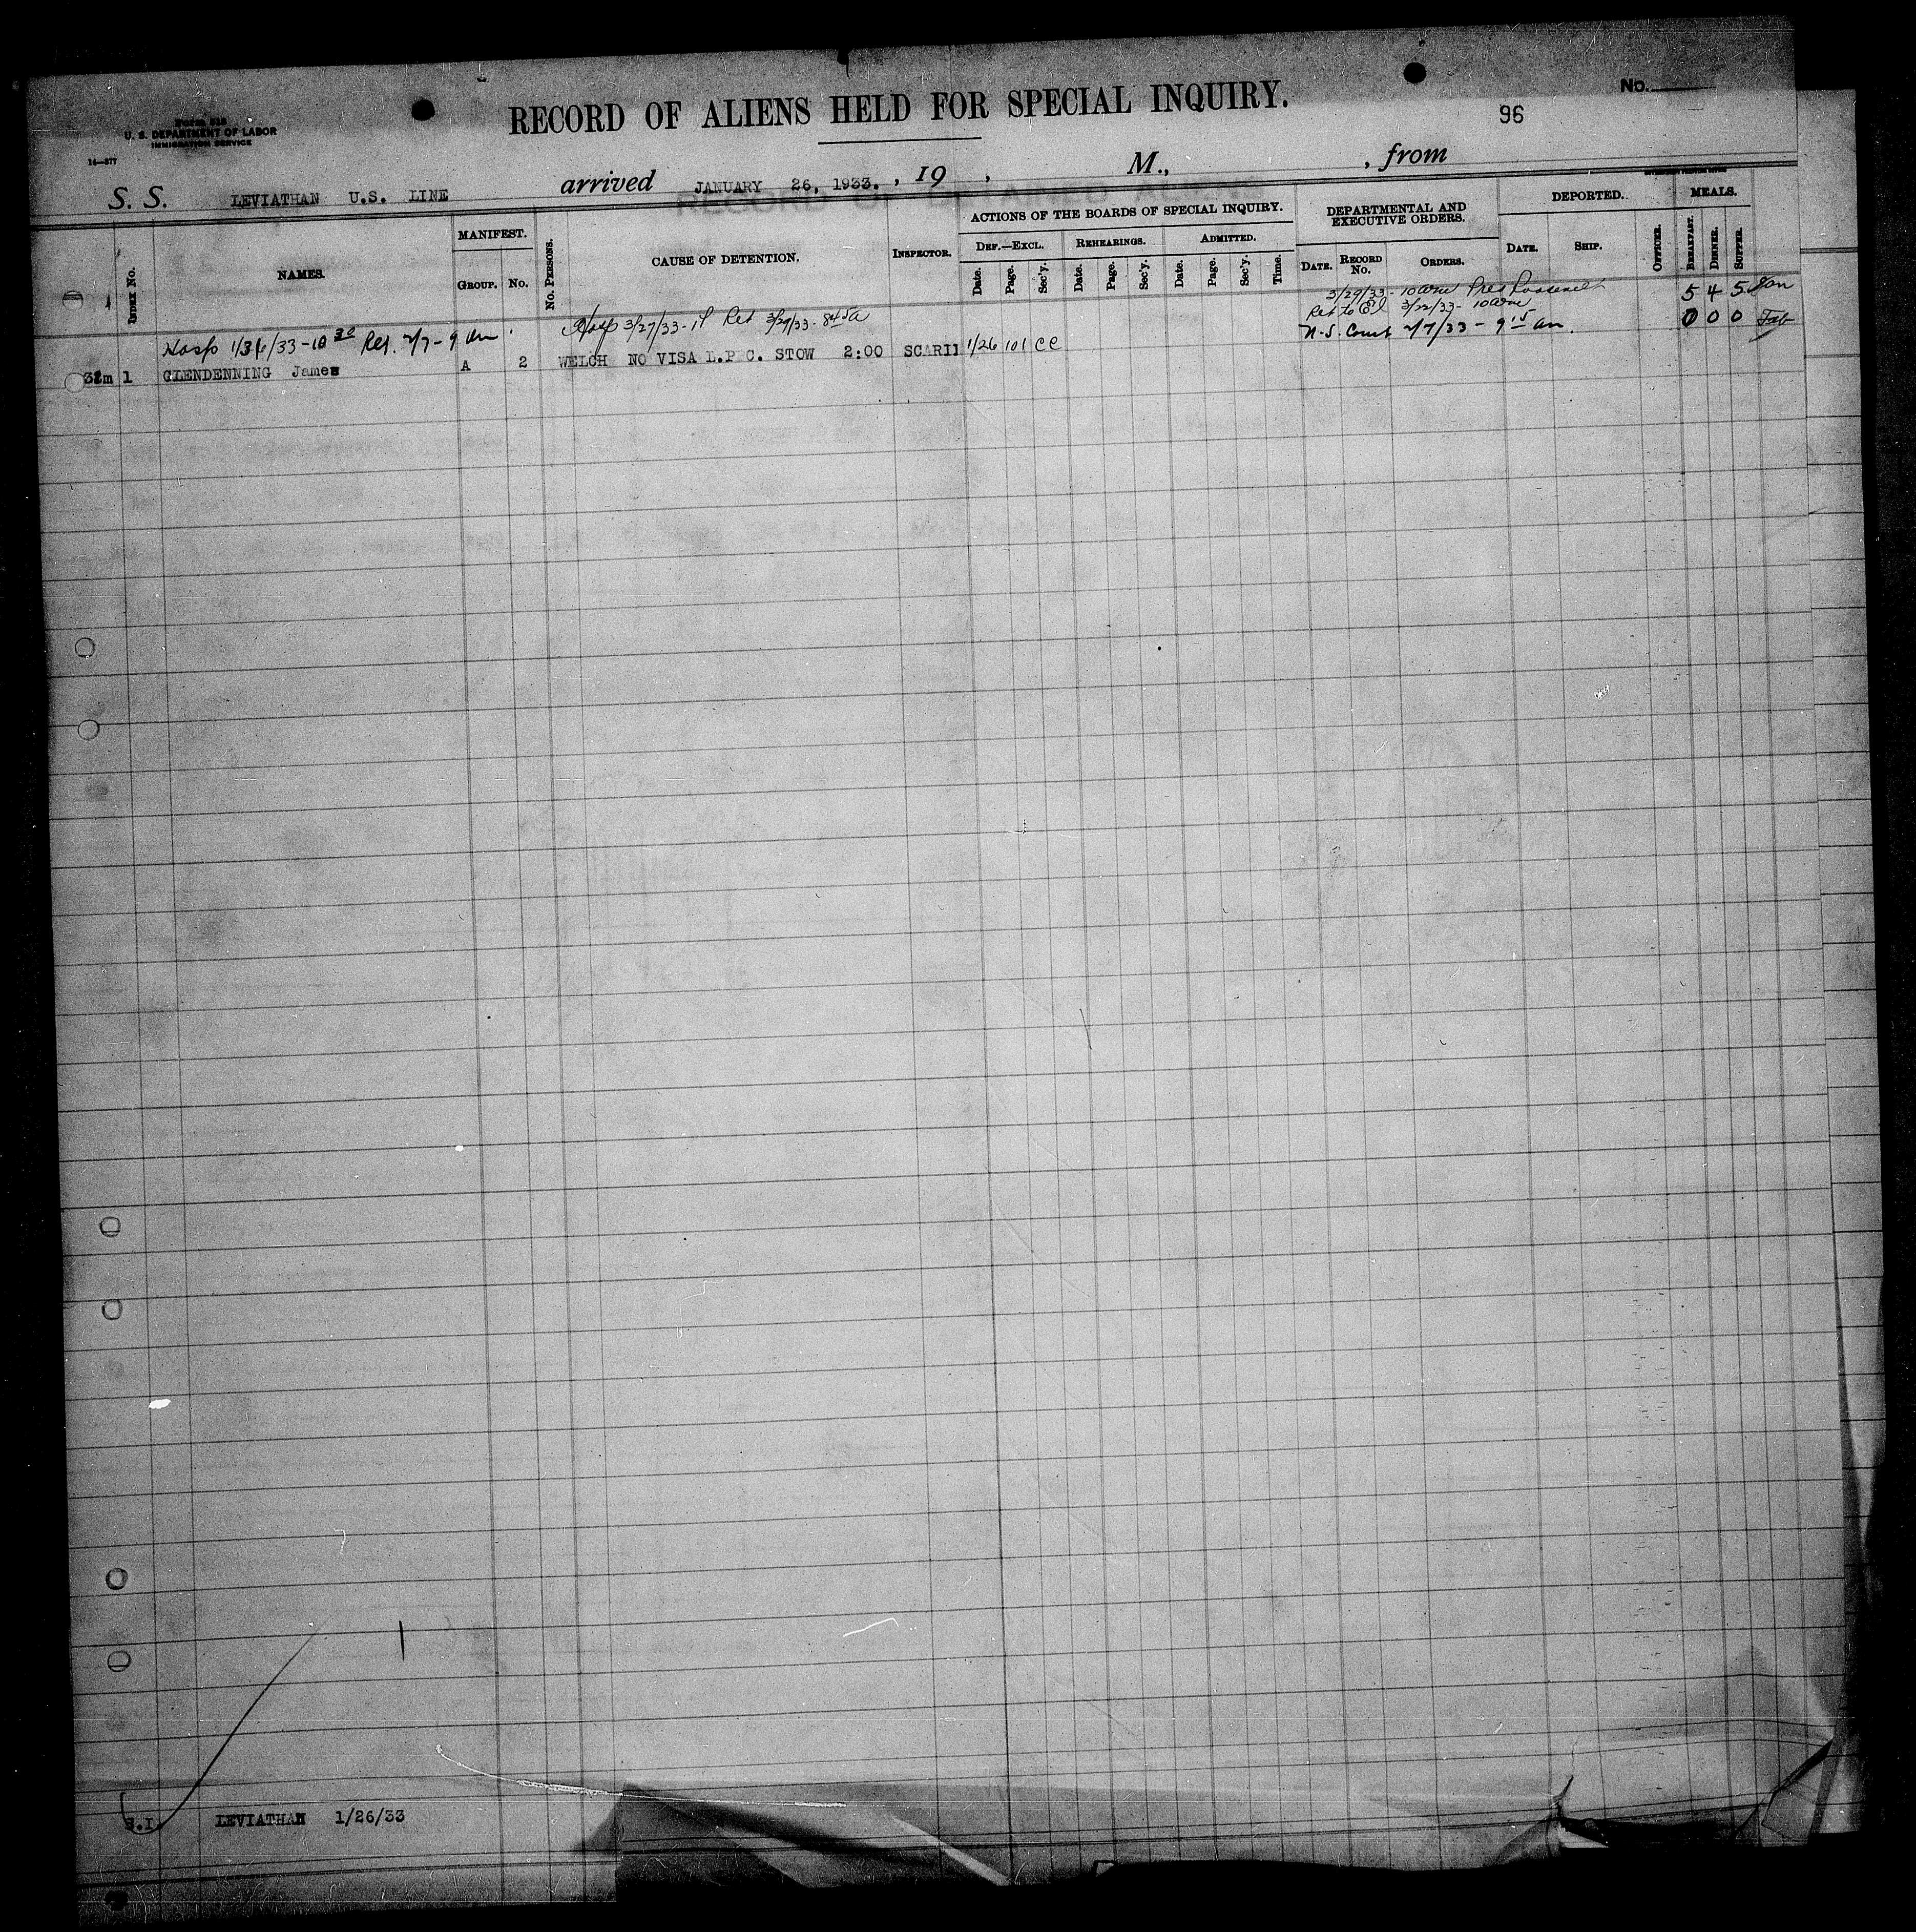 Form 518
U. S. DEPARTMENT OF LABOR
IMMIGRATION SERVICE
14—577
RECORD OF ALIENS HELD FOR SPECIAL INQUIRY.
No.
96
S. S. LEVIATHAN U.S. LINE arrived JANUARY 26, 1933. , 19 , M., , from
INDEX No. NAMES. MANIFEST. GROUP. No. No. PERSONS. CAUSE OF DETENTION. INSPECTOR.
ACTIONS OF THE BOARDS OF SPECIAL INQUIRY.
DEF.—EXCL. REHEARINGS. ADMITTED.
Date. Page. Sec'y. Date. Page. Sec'y. Date. Page. Sec'y. Time.
DEPARTMENTAL AND EXECUTIVE ORDERS.
DATE. RECORD No. ORDERS.
DEPORTED.
DATE. SHIP. OFFICER.
MEALS.
BREAKFAST. DINNER. SUPPER.
3/29/33 - 10 am Pres Roosevelt 5 4 5 Jan
Ret to EI 3/22/33 - 10 am
Hosp 3/27/33 - 1P Ret 3/29/33 - 845a
U.S. Court 2/7/33 - 9 15 am. 0 0 0 Feb
Hosp 1/36/33 - 10 30 Rel. 2/7 - 9 am
32m 1 GLENDENNING James A 2 WELCH NO VISA L.P C. STOW 2:00 SCARI 1/26 101 CC
S.I. LEVIATHAN 1/26/33